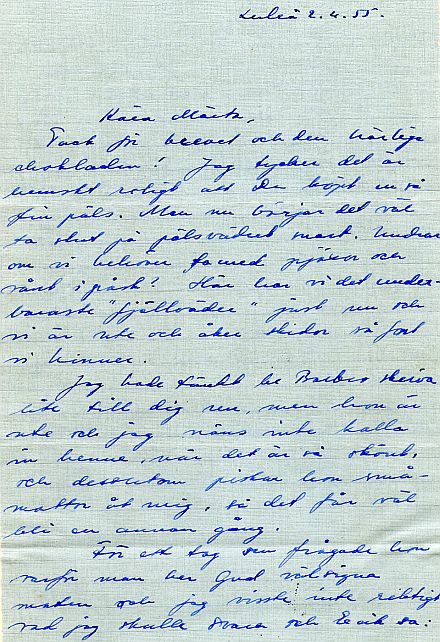 Luleå 2.4.55.
Kära Märta,
Tack för brevet och den härliga
chokladen! Jag tycker det är
hemskt roligt att Du köpt en så
fin päls. Men nu börjar det väl
ta slut på pälsvädret snart. Undrar
om vi behöver ta med pjäxor och
sånt i påsk? Här har vi det under-
baraste "fjällväder" just nu och
vi är ute och åker skidor så fort
vi hinner.
Jag hade tänkt be Barbro skriva
lite till dig nu, men hon är
ute och jag näns inte kalla
in henne, när det är så skönt,
och dessutom piskar hon små-
mattor åt mig, så det får väl
bli en annan gång.
För ett tag sen frågade hon
varför man ber Gud välsigna
maten och jag visste inte riktigt
vad jag skulle svara och sa: